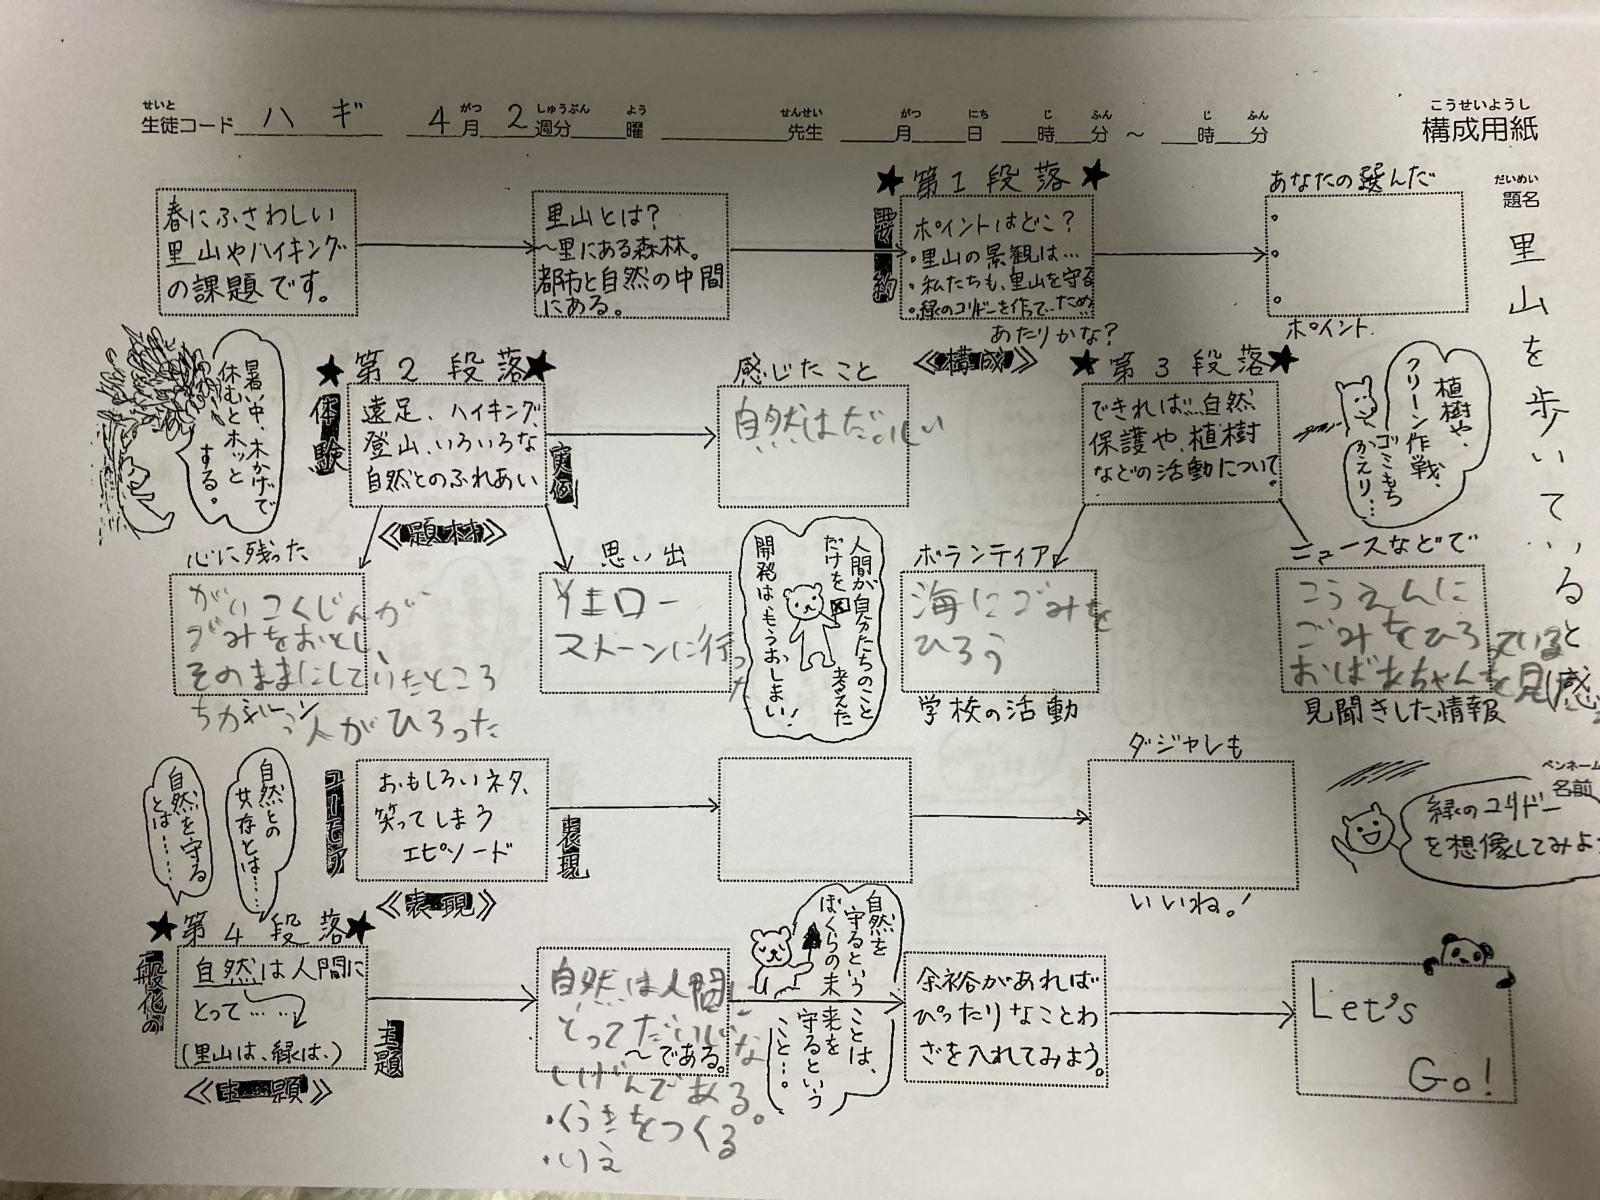 せいと
生徒コード ハギ 4月 がつ 2週分 しゅうぶん 曜 よう 先生 せんせい 月 がつ 日 にち 時 じ 分 ふん ～ 時 じ 分 ふん
こうせいようし
構成用紙
だいめい
題名
里山を歩いていると
感
ペンネーム
名前
春にふさわしい
里山やハイキング
の課題です。
里山とは？
～里にある森林。
都市と自然の中間
にある。
★第1段落★
要約
ポイントはどこ？
・里山の景観は…
・私たちも、里山を守る
・緑のコリドーを作って…ため
あたりかな？
《構成》
あなたの選んだ
ポイント
暑い中、木かげで
休むとホッと
する。
★第2段落★
体験
遠足、ハイキング、
登山、いろいろな
自然とのふれあい
実例
《題材》
感じたこと
自然はだいじ
★第3段落★
できれば…自然
保護や、植樹
などの活動について。
植樹や、
クリーン作戦、
ゴミもち
かえり…
心に残った
がいこくじんが
ごみをおとし、
そのままにしていたところ
ちがう人がひろった
思い出
イエロー
ストーンに行った
人間が自分たちのこと
だけを考えた
開発はもうおしまい！
ボランティア
海にごみを
ひろう
学校の活動
ニュースなどで
こうえんに
ごみをひろっている
おばあちゃんを見
見聞きした情報
自然との
共存とは…
自然を守る
とは……
ユーモア
おもしろいネタ、
笑ってしまう
エピソード
表現
《表現》
ダジャレも
いいね。！
緑のコリドー
を想像してみよう
★第4段落★
一般化の
自然は人間に
とって……
(里山は、緑は、)
主題
《主題》
自然は人間に
とってだいじな
～である。
しげんである。
・くうきをつくる
・いえ
自然を
守るという
ことは、
ぼくらの未来を
守るという
こと…。
余裕があれば
ぴったりなことわ
ざを入れてみよう。
Let's
Go!